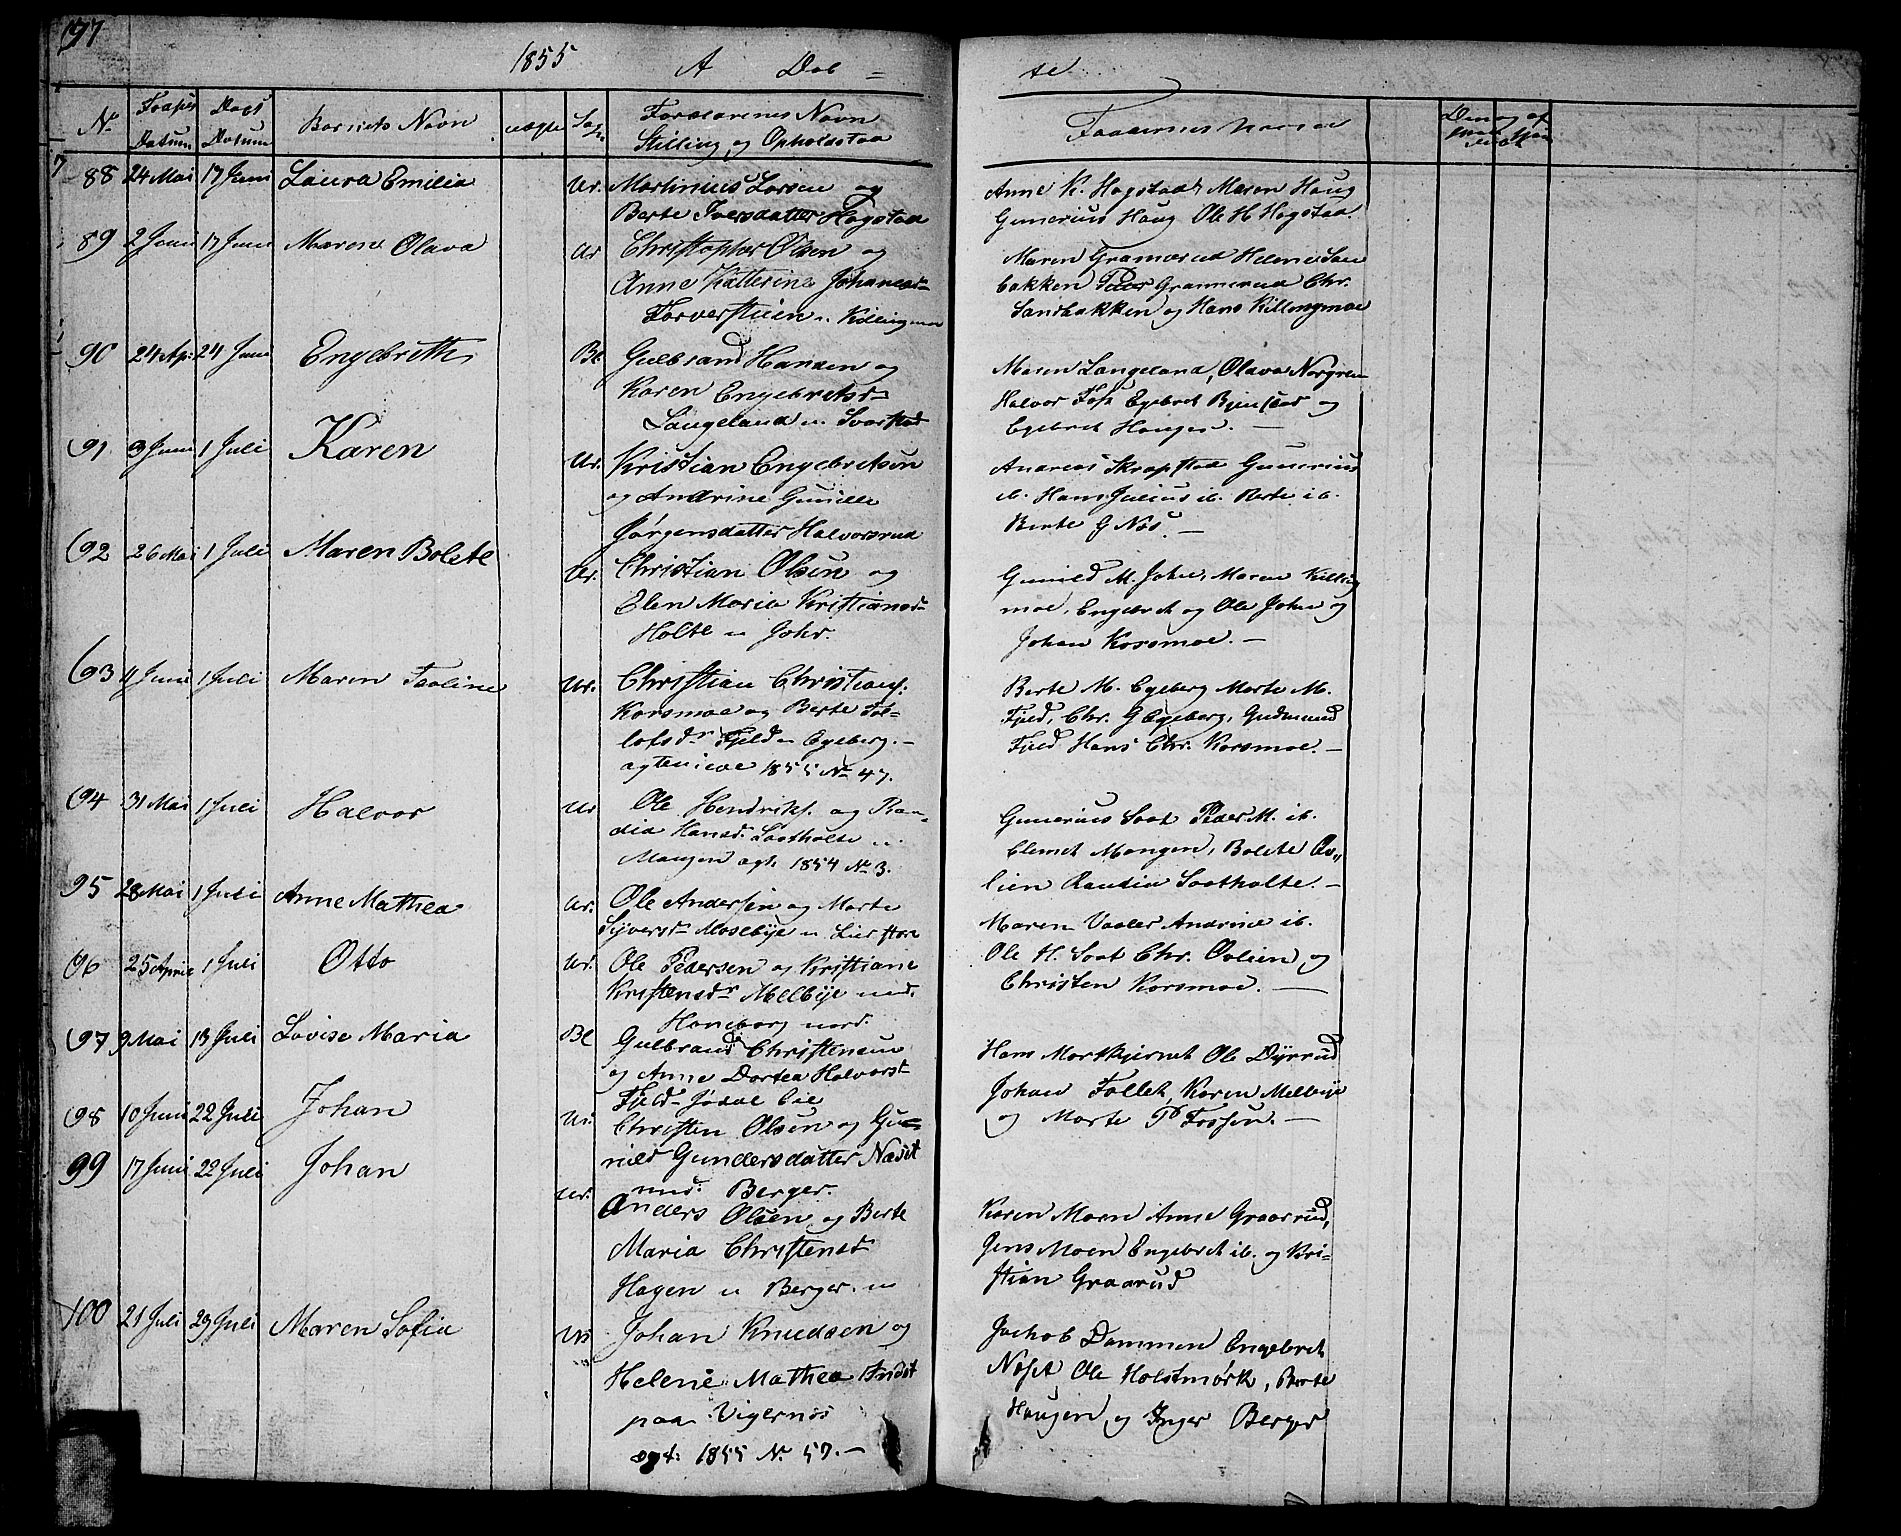 197
1855 A Døb = te
No Fødsels Datum Daabs Datum Barnets Navn uægte Sogn Forældrenes Navn Stilling og Opholdstæd Faddernes Navne
88 24 Mai 17 Juni Laura Emilia Ur. Martinius Larsen og
Berte Iversdatter Hogstad
Anne K. Hogstad Maren Haug
Gunerius Haug Ole H. Hogstad
89 2 Juni 17 Juni Maren Olava Ur Christopher Olsen og
Anne Katterine Johanesd
Torverstuen u. Kilingmoe
Maren Gramerud Helene San
bakken Peder Grammerud Chr.
Sandbakken og Hans Killingmoe
90 24 Ap. 24 Juni Engebreth Bl Gulbrand Hansen og
Karen Engebretsd
Langeland u. Svarstad
Maren Langeland, Olava Norgren
Halvor Foss Egebret og
Egebret Hauger. —
91 3 Juni 1 Juli Karen Ur. Kristian Engebretsen
og Andrine Gunille
Jørgensdatter Halvorsrud
Andreas Skrapstad Gunerius
ib. Hans Julius ib. Berte ib.
Berte G Nøs —
92 26 Mai 1 Juli Maren Bolete Ur. Christian Olsen og
Elen Maria Kristiansd
Holte u Johr.
Gunild M. Johr, Maren Killing
moe, Engebret og Ole Johr og
Johan Korsmoe. —
93 4 Juni 1 Juli Maren Taaline Ur. Christian Christians:
Korsmoe og Berte Tol=
lofsdr Fjeld u Egeberg. —
1855 No 47.
Berte M. Egeberg Marte M.
Fjeld, Chr. G Egeberg, Gudmund
Fjeld Hans Chr. Korsmoe. —
94 31 Mai 1 Juli Halvor Ur Ole Hendriks. og Ran
dia Hansd. Saatholte u.
Mangen ægt. 1854 No 3.
Gunerius Saat Peder M. ib.
Clemet Mangen, Bolete Ov
lien Randia Saatholte. —
95 28 Mai 1 Juli Anne Mathea Ur. Ole Andersen og Marte
Syversdr Mosebye u Lierstøre
Maren Vaaler Andrine ib.
Ole H. Saat Chr. Ovlien og
Christen Korsmoe. —
96 25 April 1 Juli Otto Ur. Ole Pedersen og Kristiane
Kristensdr Melbye und.
Haneborg nord.
97 9 Mai 13 Juli Lovise Maria Bl Gulbrand Christensen
og Anne Dortea Halvorsd
Fjeld
Hans Morkhjernet Ole Dyrrud
Johan Tollet, Karen Melbye
og Marte P Fossen. —
98 10 Juni 22 Juli Johan Ur. Christen Olsen og Gu=
nild Gundersdatter Næset
und: Berger.
99 17 Juni 22 Juli Johan Ur. Anders Olsen og Berte
Maria Christensd
Hagen u Berger. u
Karen Moen Anne Graarud,
Jens Moen Engebret ib. og Kri=
stian Graarud
100 21 Juli 29 Juli Maren Sofia Ur Johan Knudsen og
Helene Mathea Indst
paa Vigernøs
ægt: 1855 No 57. —
Jachob Dammen Engebret
Nøset Ole Holstmørk, Berte
Haugen, og Inger Berger